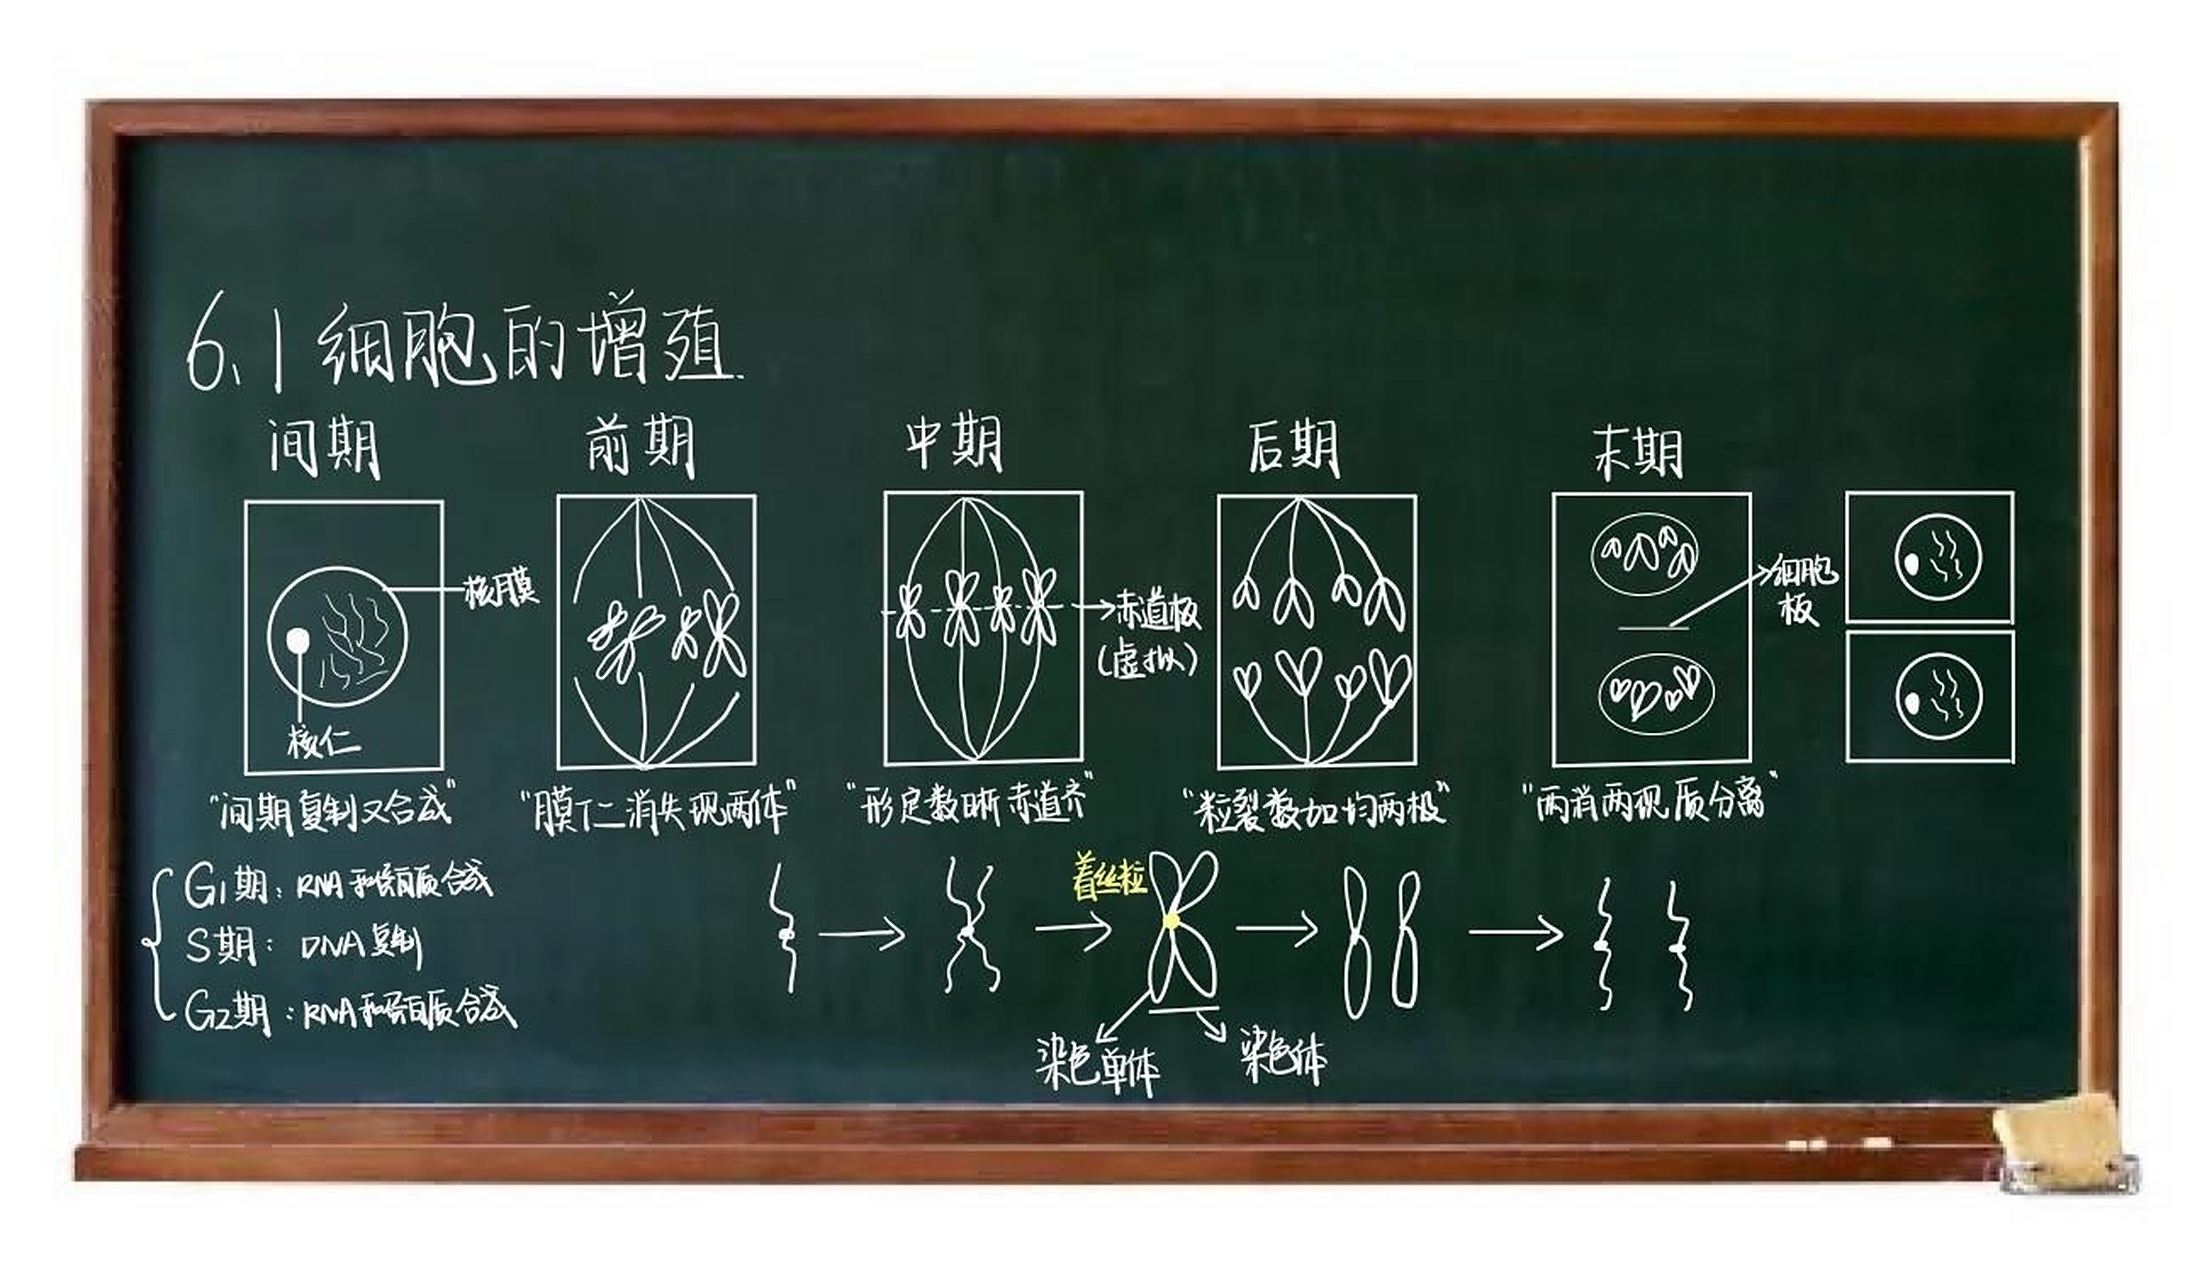 6.1 细胞的增殖
间期 前期 中期 后期 末期
核膜
核仁
赤道板
(虚拟)
细胞
板
"间期复制又合成" "膜仁消失现两体" "形定数晰赤道齐" "粒裂数加均两极" "两消两现质分离"
G1期: RNA和蛋白质合成
S期: DNA复制
G2期: RNA和蛋白质合成
着丝粒
染色单体 染色体